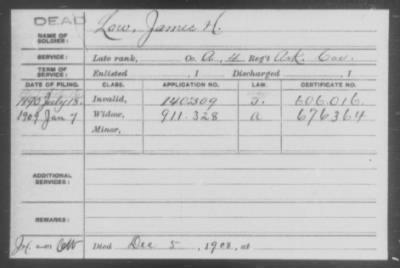 DEAD
NAME OF SOLDIER: Low, James H.
SERVICE: Late rank, Co. A, 4 Reg't Ark. Cav.
TERM OF SERVICE: Enlisted , 1 Discharged , 1
DATE OF FILING. CLASS. APPLICATION NO. LAW. CERTIFICATE NO.
July 18. Invalid, J. 606.016.
1909 Jan 7 Widow, 911.328 a 676364
Minor,
ADDITIONAL SERVICES:
REMARKS:
Died Dec 5, 1908, at